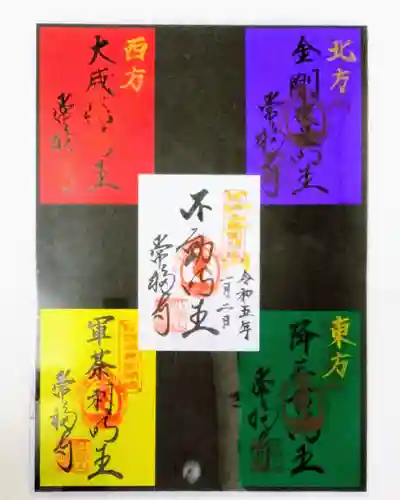 北方
金剛夜叉明王
常福寺
西方
大威徳明王
常福寺
不動明王
常福寺
令和五年
一月二日
東方
降三世明王
常福寺
軍荼利明王
常福寺